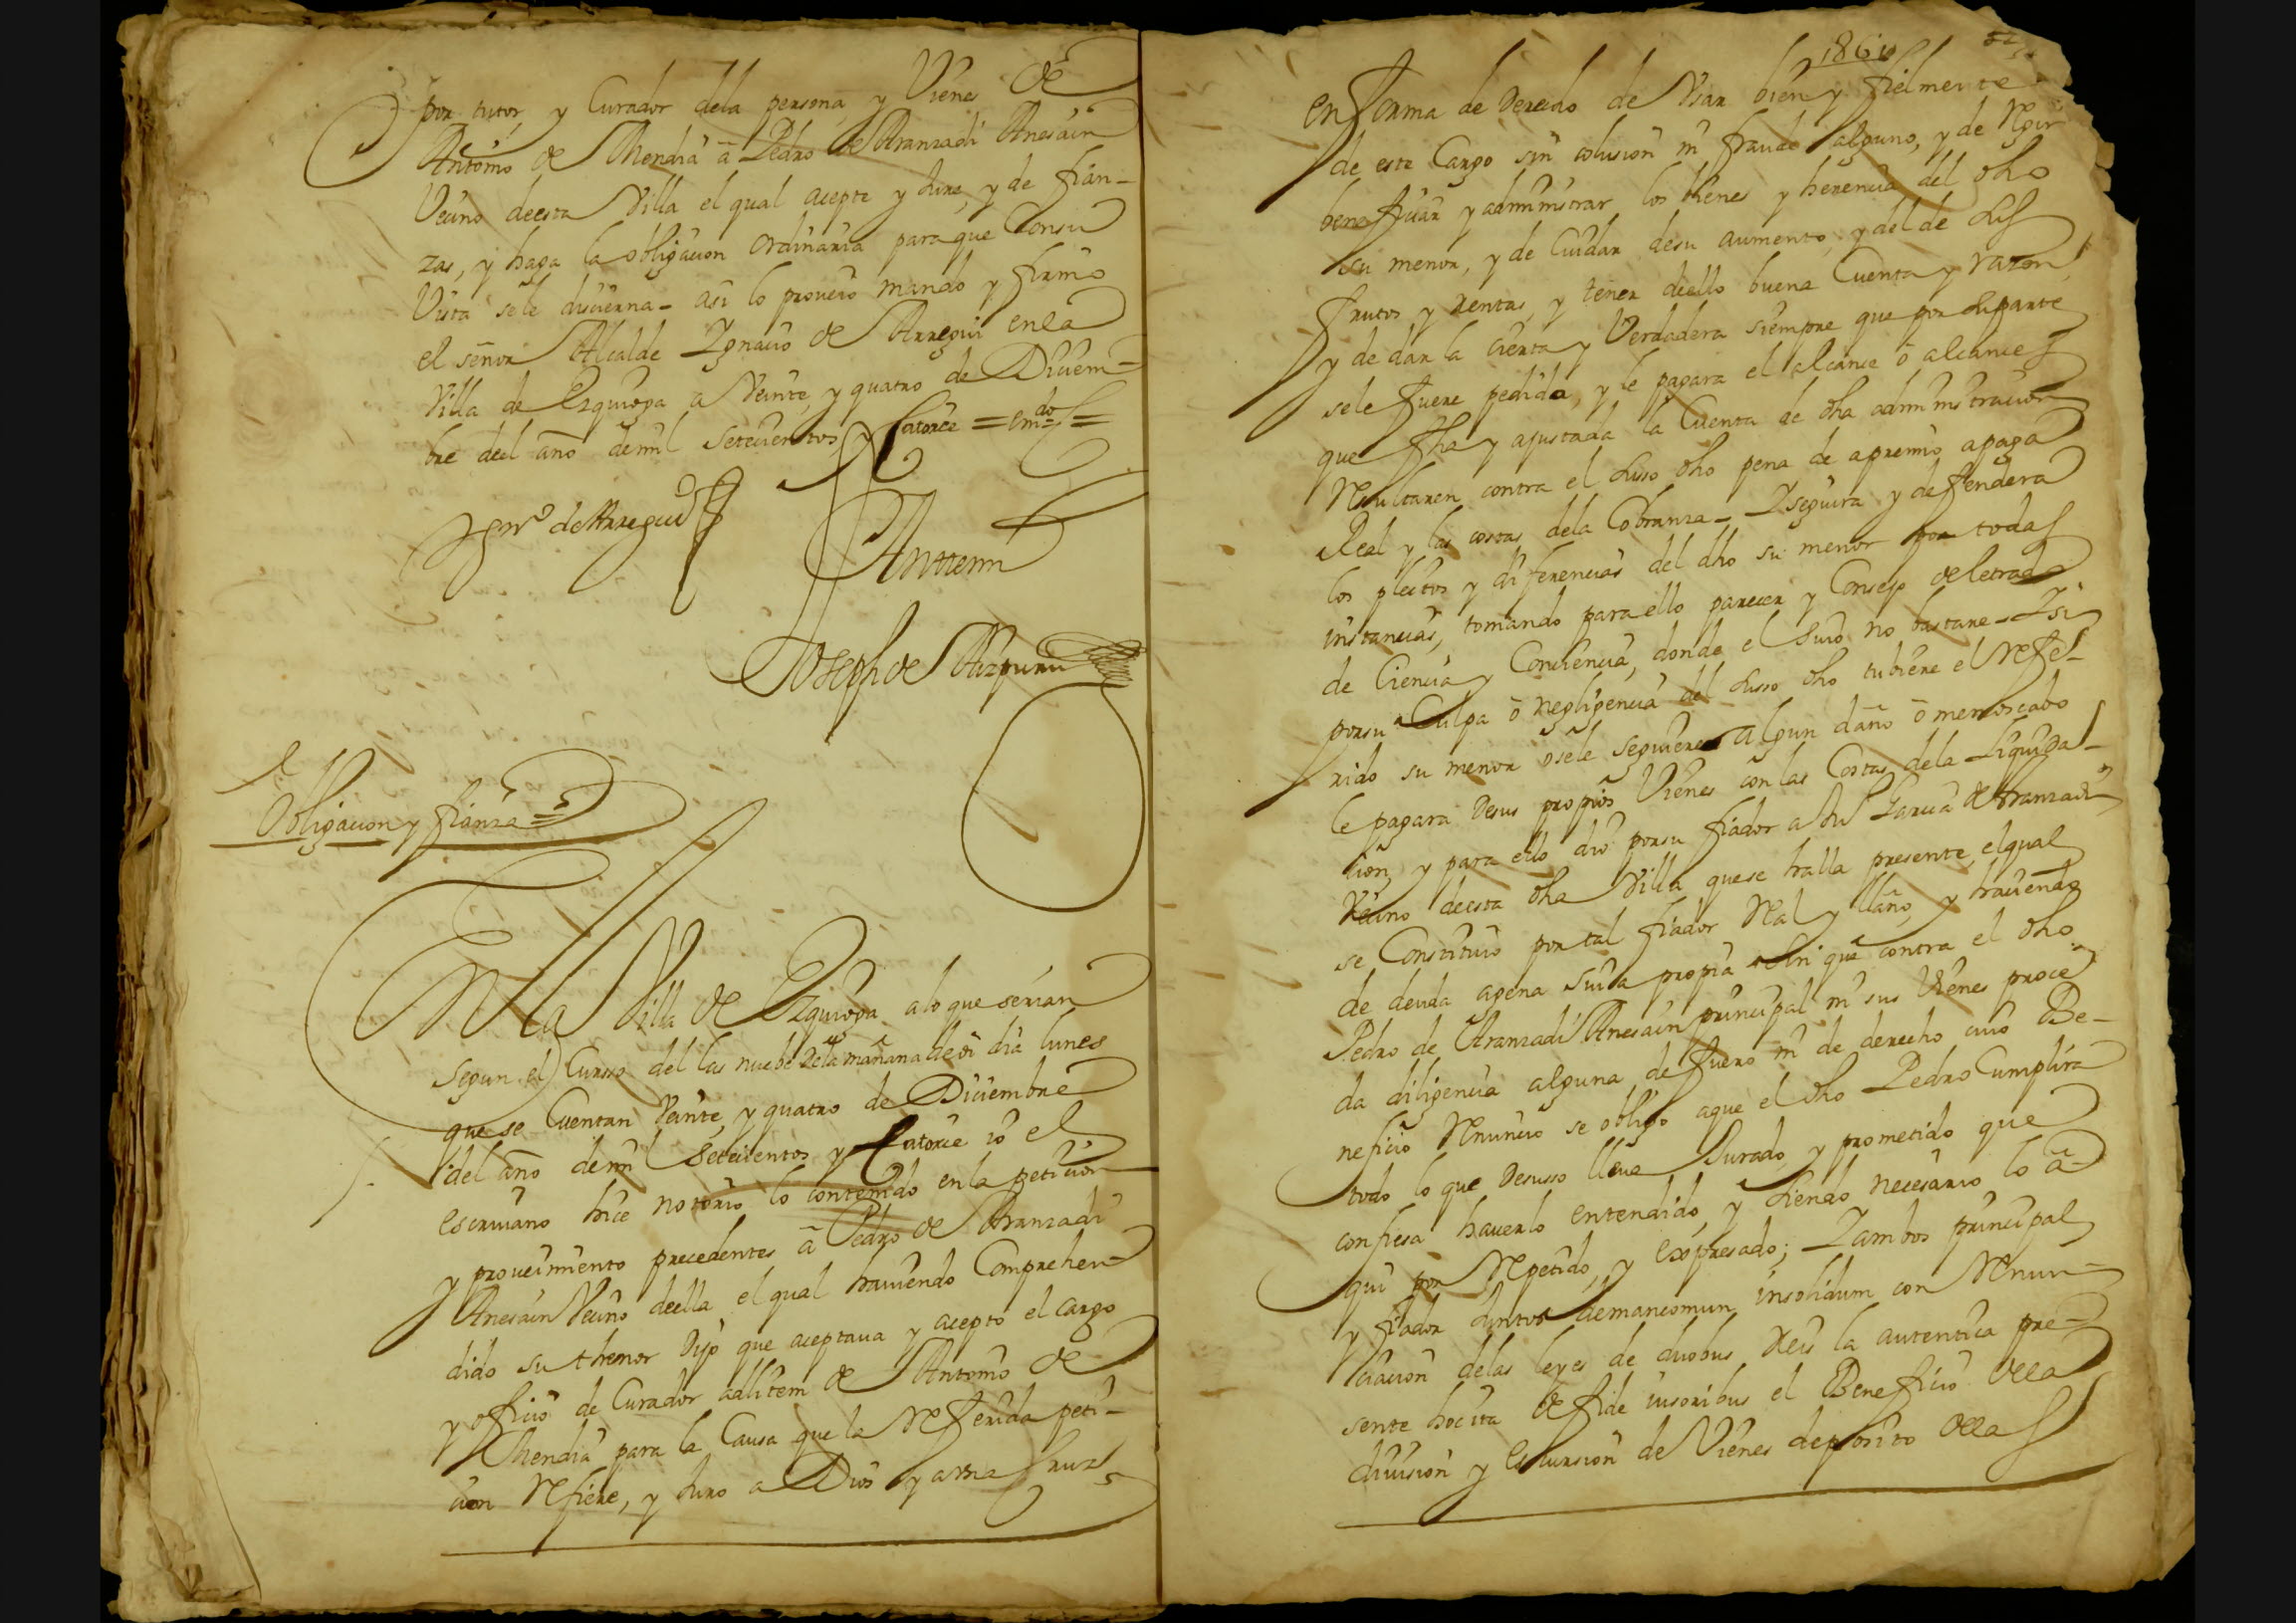 por tutor y Curador dela persona y Vienes de
Antonio de Mendia â Pedro de Aranzadi Anesain
Vecino deesta Villa el qual acepte y Jure, y de fian-
zas, y haga la obligacion Ordinaria para que Consu
Vista sele discierna - asi lo proveio mando y firmo
el señor Alcalde Ignacio de Arregui enla
Villa de Ezquioga a Veinte, y quatro de Diciem-
bre deel año demil setecientos y Catorce = emdo =
Igno de Arregui
Anttemi
Joseph de Aizpuru
Obligacion y fianza =
En la Villa de Ezquioga alo que serian
segun el Cursso del las nuebe dela mañana de oi dia lunes
que se Cuentan Veinte, y quatro de Diciembre
del año demil setecientos y Catorce io el
escrivano hice notorio lo contenido enla peticion
y proveimiento precedentes â Pedro de Aranzadi
Anesain Vecino deella el qual haviendo Comprehen-
dido su thenor Dijo que aceptava y acepto el cargo
y oficio de Curador adlitem de Antonio de
Mendia para la Causa que la Referida peti-
cion Refiere, y Juro a Dios y auna Cruz
1861
en forma de derecho de Usar bien y fielmente
de este Cargo sin colusion ni fraude alguno, y de Regir
beneficiar y administrar los bienes y herencia del dho
su menor, y de Cuidar desu aumento, y del de sus
frutos y rentas, y tener dello buena Cuenta y razon,
y de dar la cierta y Verdadera siempre que por su parte
sele fuere pedida, y le pagara el alcance ô alcances
que fha y ajustada la Cuenta de dha administracion
Resultaren contra el suso dho pena de apremio apaga
Real y las costas dela Cobranza - Iseguira y defendera
los pleitos y diferencias del dho su menor por todas
instancias, tomando para ello parecer y Consejo de letrado
de Ciencia y Conciencia, donde el suio no bastare - Isi
porsu Culpa ô negligencia del susso dho tubiere el Refe-
rido su menor o sele seguiere algun daño ô menoscabo
le pagara desus propios Vienes con las Costas dela Liquida-
cion, y para ello dio porsu fiador a Garcia de Aranzadi
Vecino deesta dha Villa quese halla presente, elqual
se Constituio por tal fiador Real y llano, y haciendo
de deuda agena suia propia sin que contra el dho
Pedro de Aranzadi Anesain principal ni sus Vienes proce
da diligencia alguna de fuero ni de derecho cuio Be-
neficio Renuncio se obligo aque el dho Pedro Cumplira
todo lo que desusso lleva Jurado, y prometido que
confiesa haverlo entendido, y siendo necesario lo â
qui por Repetido, y expresado; Iambos principal
y fiador Juntos demancomun, insolidum con Renun-
ciacion delas leyes de duobus Reis la autentica pre-
sente hocita de fide iusoribus el Beneficio dela
division y escursion de Vienes deposito delas